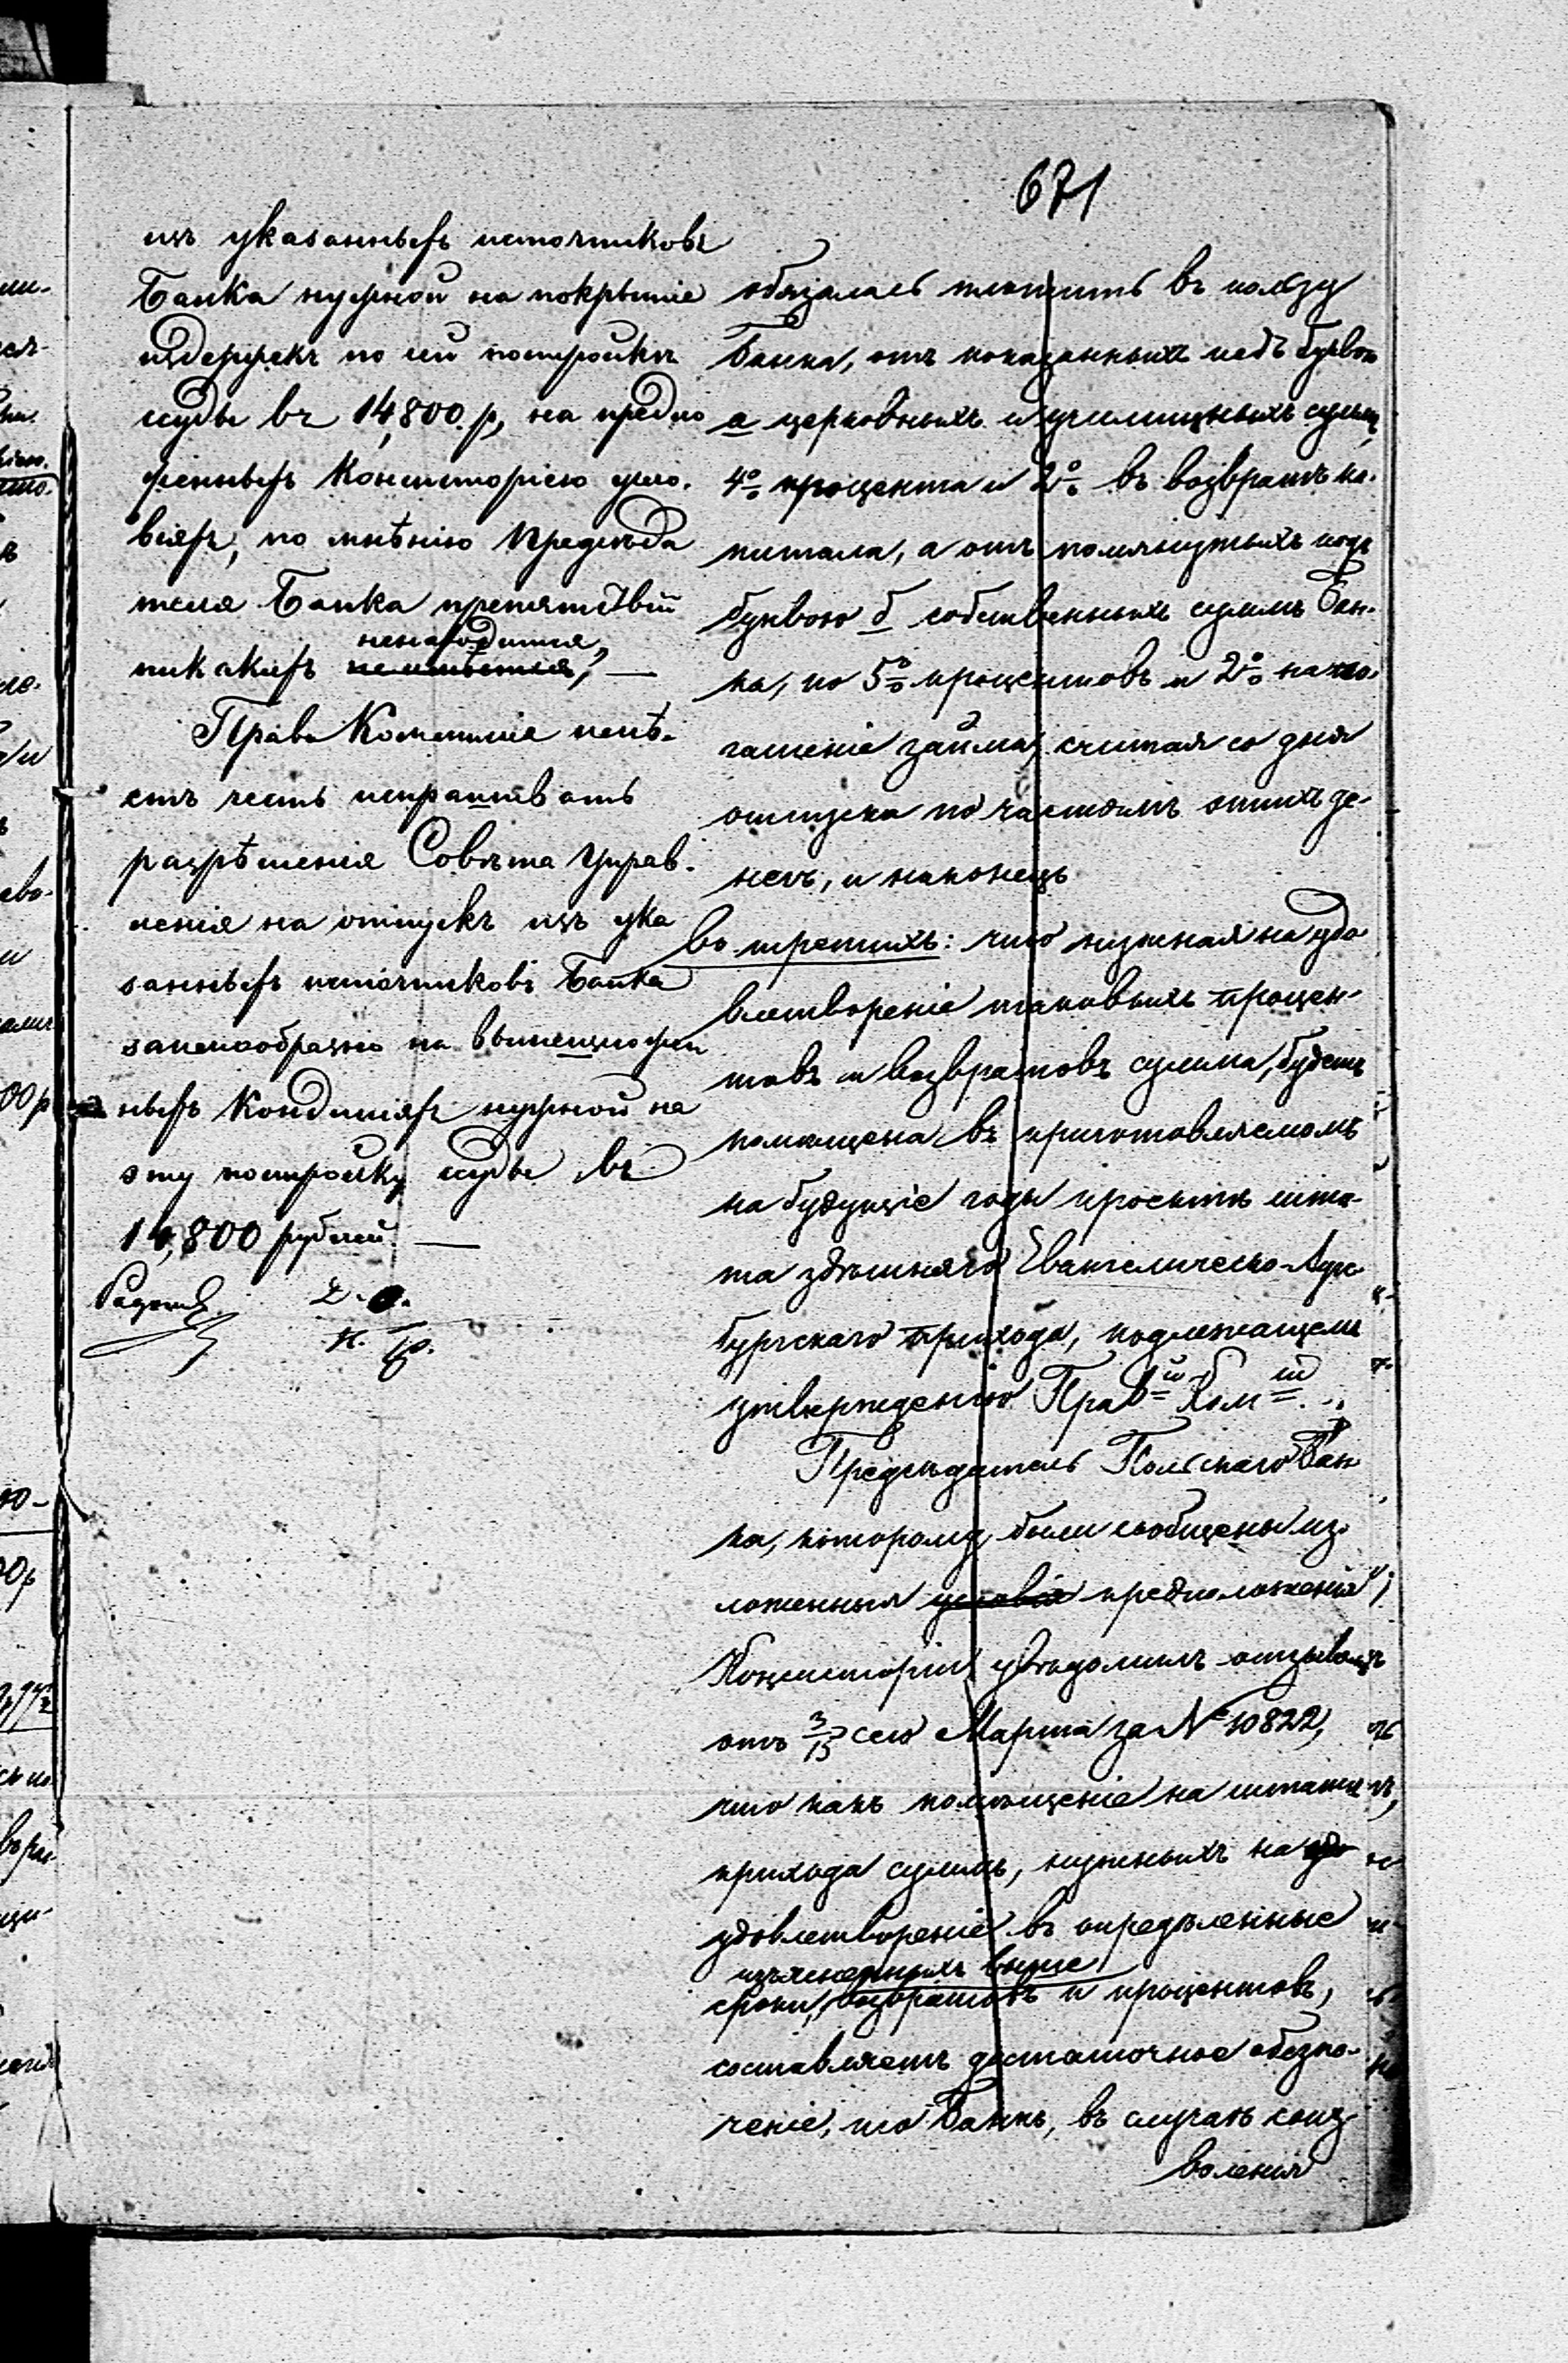 671
изъ указанныхъ источниковъ
Банка нужной на покрытіе
издержекъ по сей постройкѣ
ссуды въ 14,800 р, на предло
женныхъ Консисторіею усло-
віяхъ, по мнѣнію Предсѣда
теля Банка препятствій
ненаходится,
никакихъ неимѣется, —
Прав. Коммисія имѣ-
етъ честь испрашивать
разрѣшенія Совѣта Управ-
ленія на отпускъ изъ ука
занныхъ источниковъ Банка
заимообразно на вышеизложен
ныхъ Кондиціяхъ нужной на
эту постройку ссуды въ
14,800 рублей. —
обязалась платить въ пользу
Банка, отъ показанныхъ подъ буквою
а церковныхъ и училищныхъ суммъ,
4% процента и 2% въ возвратъ ка-
питала, а отъ помянутыхъ подъ
буквою б собственныхъ суммъ Бан-
ка, по 5% процентовъ и 2% на по-
гашеніе займа, считая со дня
отпуска по частямъ этихъ де-
негъ, и наконецъ
въ третьихъ: что нужная на удо
влетвореніе таковыхъ процен-
товъ и возвратовъ сумма, будетъ
помѣщена въ приготовляемомъ
на будущіе годы проектѣ шта-
та здѣшняго Евангелическо-Аугс
бургскаго прихода, подлежащемъ
утвержденію Прав=й Ком=іи.
Предсѣдатель Польскаго Бан
ка, которому были сообщены из-
ложенныя условія предположенія,
Консисторіи увѣдомилъ отзывомъ
отъ 3/15 сего Марта за № 10822,
что какъ помѣщеніе на штатѣ
прихода суммъ, нужныхъ на удо
удовлетвореніе въ опредѣленные
изъясненныхъ выше
сроки, возвратовъ и процентовъ,
составляетъ достаточное обезпе-
ченіе, то Банкъ, въ случаѣ соиз-
воленія